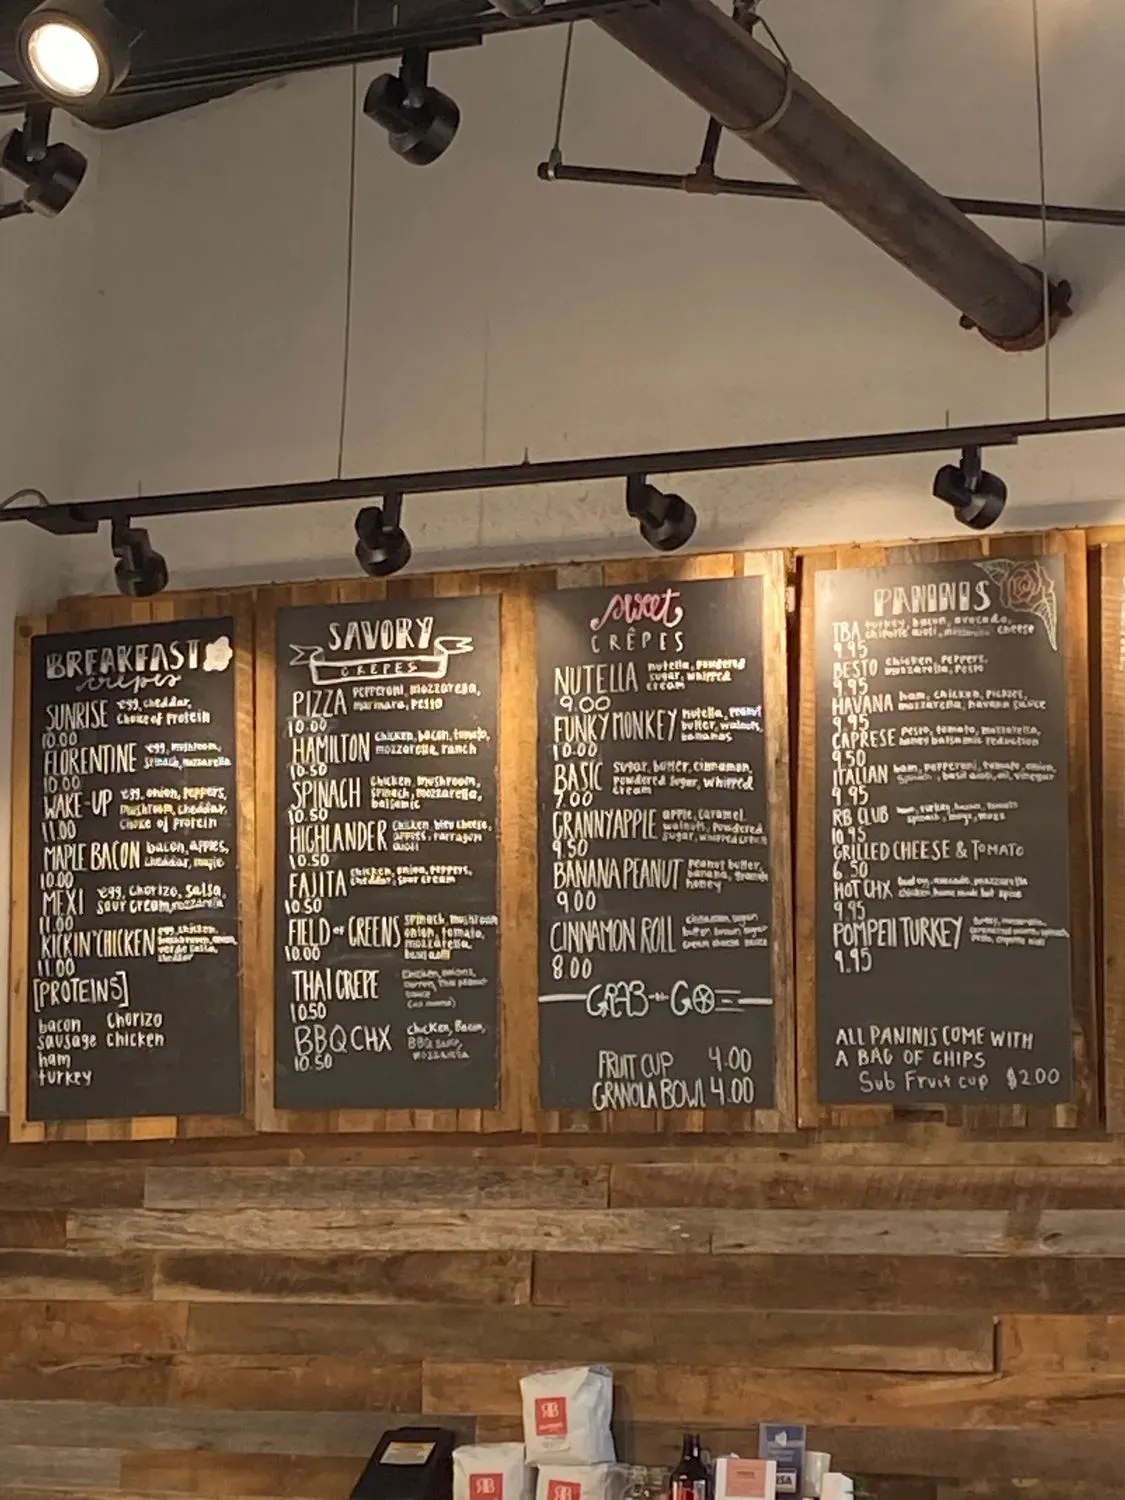 BREAKFAST
crêpes
SUNRISE egg, cheddar,
choice of Protein
10.00
FLORENTINE egg, mushroom,
spinach, mozzarella
10.00
WAKE-UP egg, onion, peppers,
mushroom, cheddar,
choice of protein
11.00
MAPLE BACON bacon, apples,
cheddar, maple
10.00
MEXI egg, chorizo, salsa,
sour cream, mozzarella
KICKIN' CHICKEN egg, chicken,
verde salsa,
cheddar
11.00
[PROTEINS]
bacon chorizo
sausage chicken
ham
turkey
SAVORY
CREPES
PIZZA pepperoni, mozzarella,
marinara, pesto
10.00
HAMILTON chicken, bacon, tomato,
mozzarella, ranch
10.50
SPINACH chicken, mushroom,
spinach, mozzarella,
balsamic
10.50
HIGHLANDER chicken, bleu cheese,
apples, tarragon
aioli
10.50
FAJITA chicken, onion, peppers,
cheddar, sour cream
10.50
FIELD OF GREENS spinach, mushroom
onion, tomato,
mozzarella,
10.00
THAI CREPE chicken, onions,
sauce
10.50
BBQ CHX chicken, bacon,
BBQ sauce,
mozzarella
10.50
sweet
CRÊPES
NUTELLA nutella, powdered
sugar, whipped
cream
9.00
FUNKY MONKEY nutella, peanut
butter, walnuts,
bananas
10.00
BASIC sugar, butter, cinnamon,
powdered sugar, whipped
cream
7.00
GRANNY APPLE apple, caramel,
walnuts, powdered
sugar, whipped cream
9.50
BANANA PEANUT peanut butter,
banana, granola
honey
9.00
CINNAMON ROLL cinnamon, sugar
butter, brown sugar
cream cheese sauce
8.00
GRAB-N-GO
FRUIT CUP 4.00
GRANOLA BOWL 4.00
PANINIS
TBA turkey, bacon, avocado,
chipotle aioli, mozzarella cheese
9.95
BESTO chicken, peppers,
mozzarella, pesto
9.95
HAVANA ham, chicken, pickles,
mozzarella, havana sauce
9.95
CAPRESE pesto, tomato, mozzarella,
honey balsamic reduction
9.50
ITALIAN ham, pepperoni, tomato, onion,
spinach, basil aioli, vinegar
9.95
RB CLUB ham, turkey, bacon, tomato
spinach, mayo, mozz
10.95
GRILLED CHEESE & TOMATO
6.50
HOT CHX avocado, mozzarella
chicken
9.95
POMPEII TURKEY
9.95
ALL PANINIS COME WITH
A BAG OF CHIPS
Sub Fruit cup $2.00
RB
RB
RB
VISA